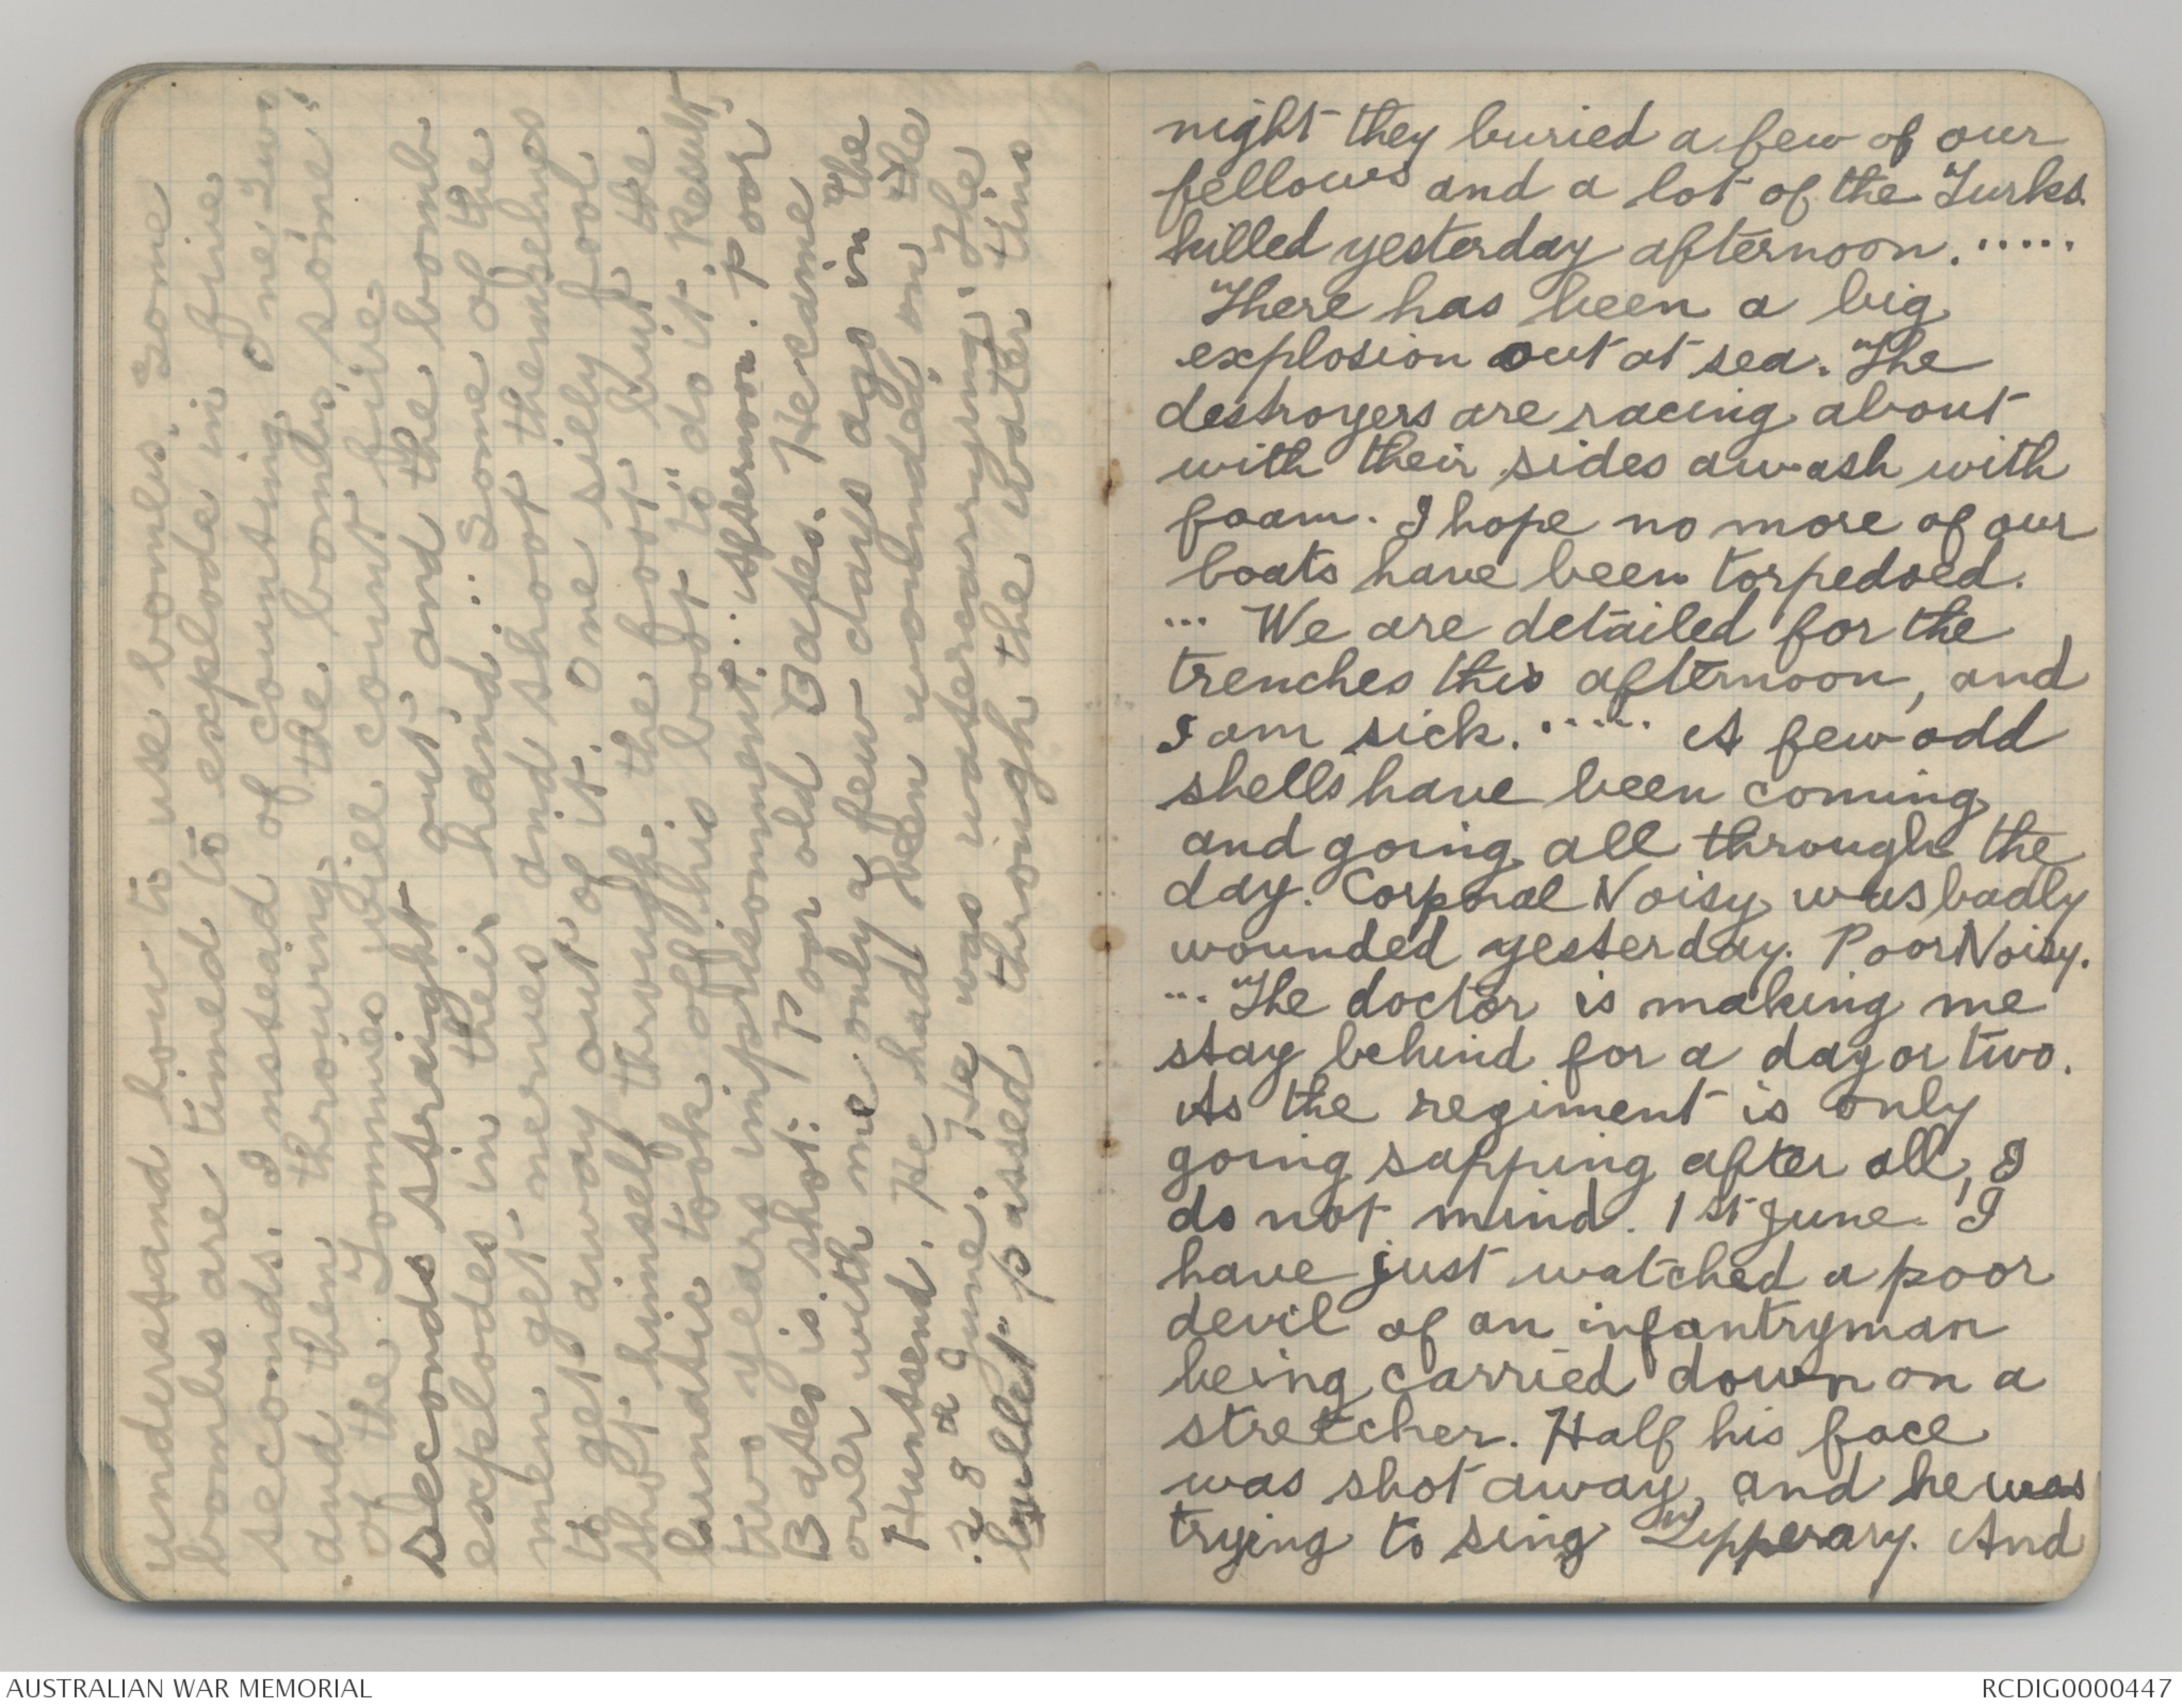 understand how to use bombs. Some
bombs are timed to explode in five
seconds. Instead of counting One Two
and then throwing the bombs, some
of the Tommies will count five
seconds straight out, and the bomb
explodes in their hand... Some of the
men get nerves and shoot themselves
to get away out of it. One silly fool
shot himself through the foot, but the
lunatic took off his boot "to do it. Result,
two years imprisonment... Afternoon. Poor
Bates is shot. Poor old Bates. He came
over with me only a few days ago in the
Huntsend. He had been wounded on the
28th June. He was watercarrying. The
bullet passed through the water tins
night they buried a few of our
fellows and a lot of the Turks
killed yesterday afternoon. .....
There has been a big
explosion out at sea. The
destroyers are racing about
with their sides awash with
foam. I hope no more of our
boats have been torpedoed.
... We are detailed for the
trenches this afternoon, and
I am sick. ..... A few odd
shells have been coming
and going all through the
day. Corporal Noisy was badly
wounded yesterday. Poor Noisy.
... The doctor is making me
stay behind for a day or two.
As the regiment is only
going sapping after all, I
do not mind. 1st June. I
have just watched a poor
devil of an infantryman
being carried down on a
stretcher. Half his face
was shot away, and he was
trying to sing Tipperary. And
AUSTRALIAN WAR MEMORIAL
RCDIG0000447